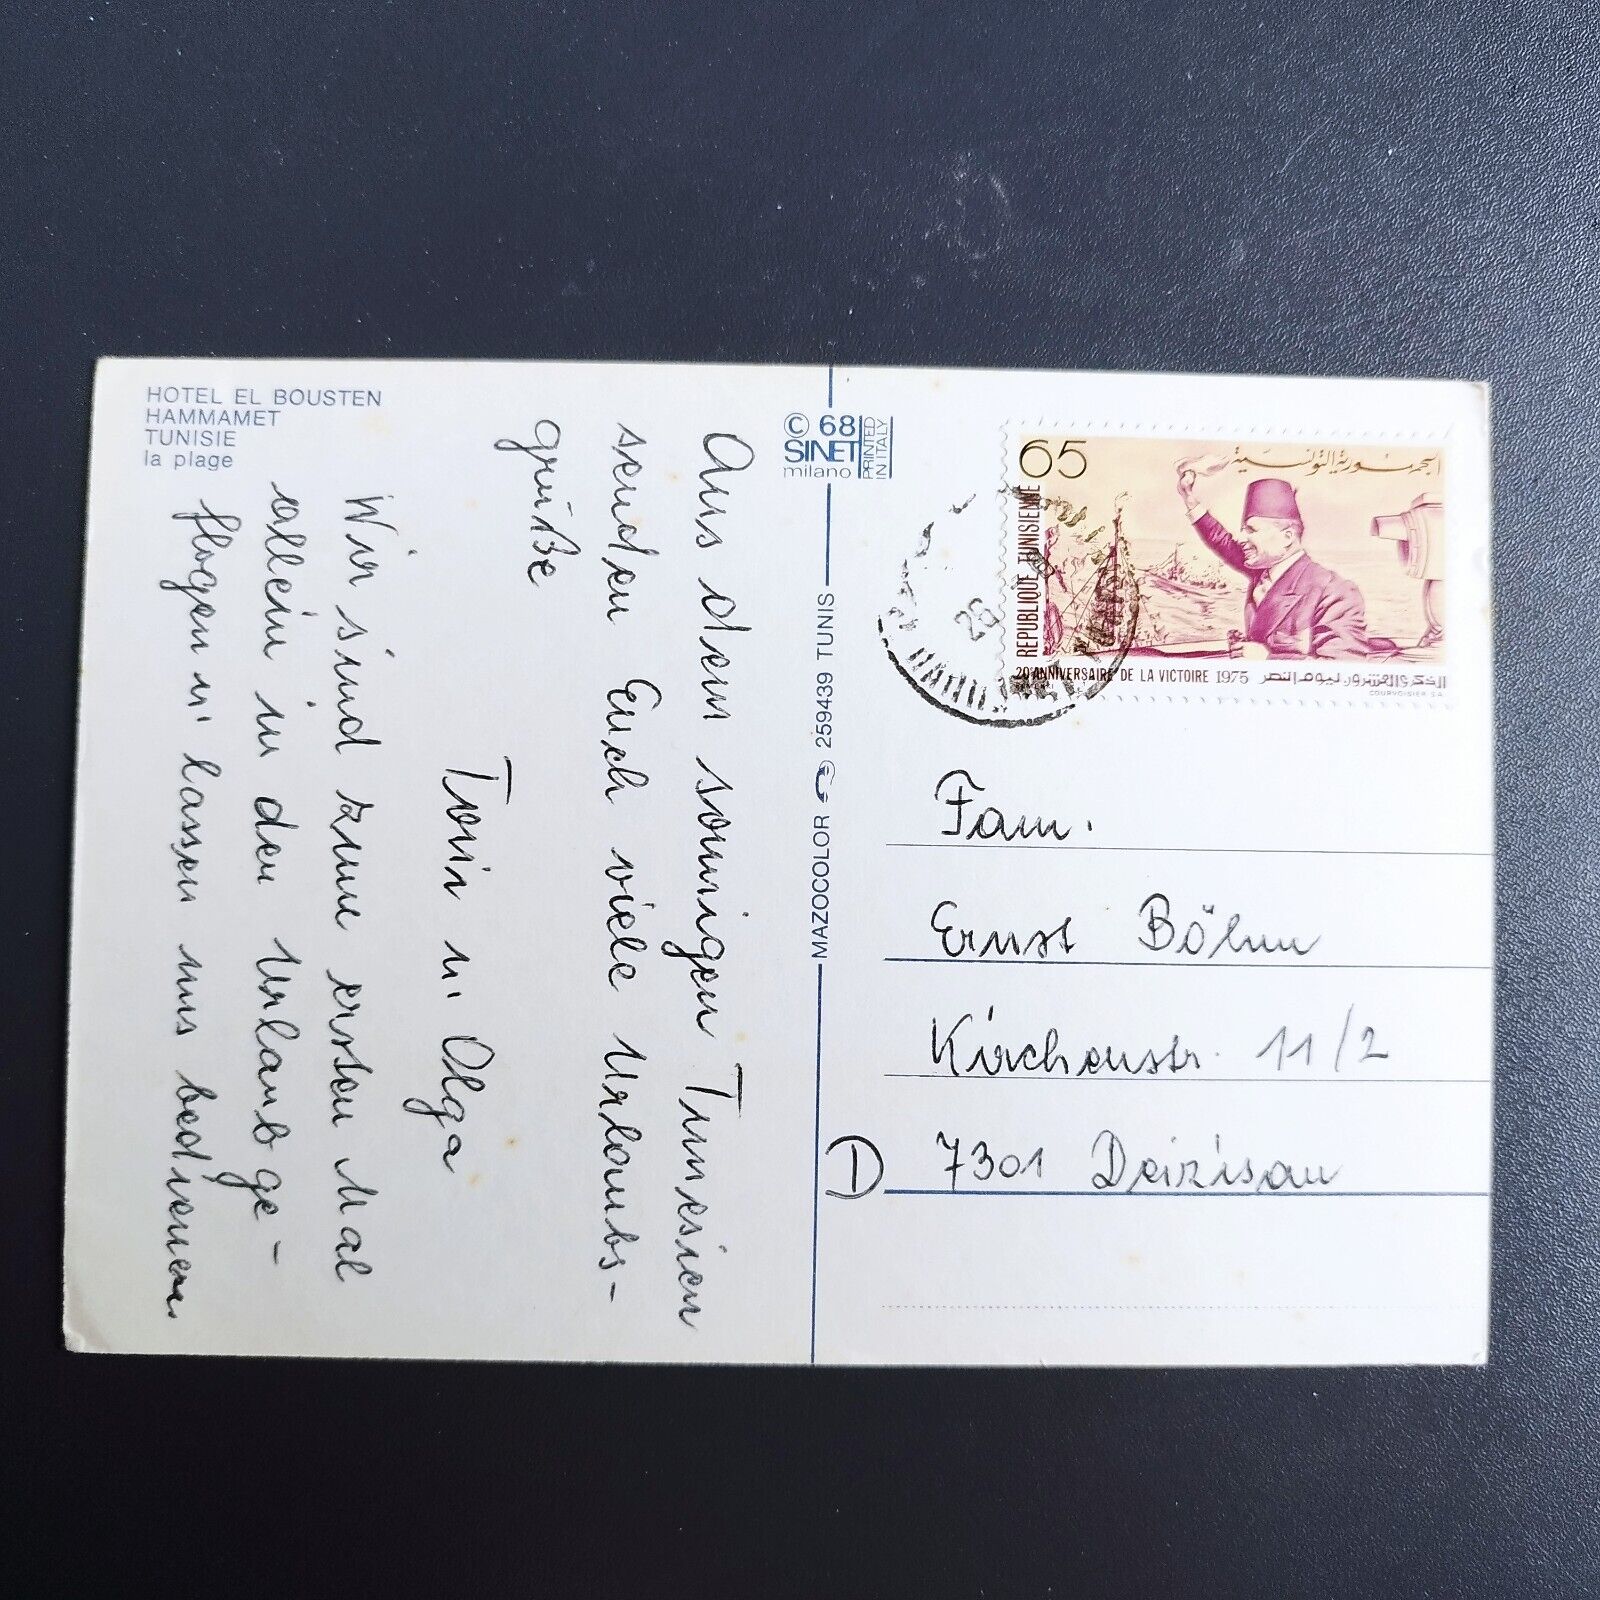 HOTEL EL BOUSTEN
HAMMAMET
TUNISIE
la plage
Aus dem sonnigen Tunesien
senden Euch viele Urlaubs-
grüße
Toni u. Olga
Wir sind zum ersten Mal
allein in den Urlaub ge-
flogen u. lassen uns bedienen.
© 68
SINET
milano
PRINTED
IN ITALY
MAZOCOLOR 259439 TUNIS
65
الجمهورية التونسية
REPUBLIQUE TUNISIENNE
20e ANNIVERSAIRE DE LA VICTOIRE 1975 الذكرى العشرون ليوم النصر
COURVOISIER S.A.
26
Fam.
Ernst Böhm
Kirchenstr. 11/2
D 7301 Deizisau